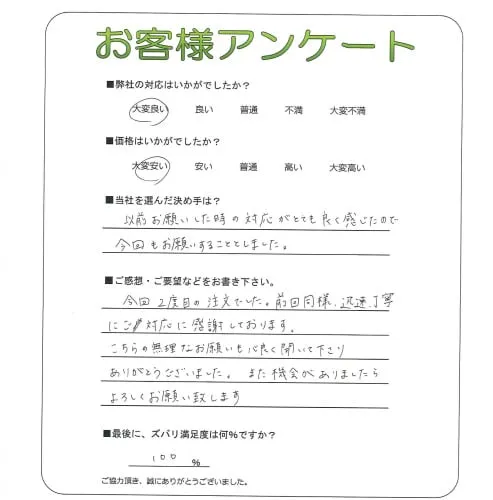 お客様アンケート
■弊社の対応はいかがでしたか？
大変良い 良い 普通 不満 大変不満
■価格はいかがでしたか？
大変安い 安い 普通 高い 大変高い
■当社を選んだ決め手は？
以前お願いした時の対応がとても良く感じたので
今回もお願いすることとしました。
■ご感想・ご要望などをお書き下さい。
今回2度目の注文でした。前回同様、迅速丁寧
にご対応に感謝しております。
こちらの無理なお願いも心良く聞いて下さり
ありがとうございました。また機会がありましたら
よろしくお願い致します
■最後に、ズバリ満足度は何％ですか？
100 ％
ご協力頂き、誠にありがとうございました。